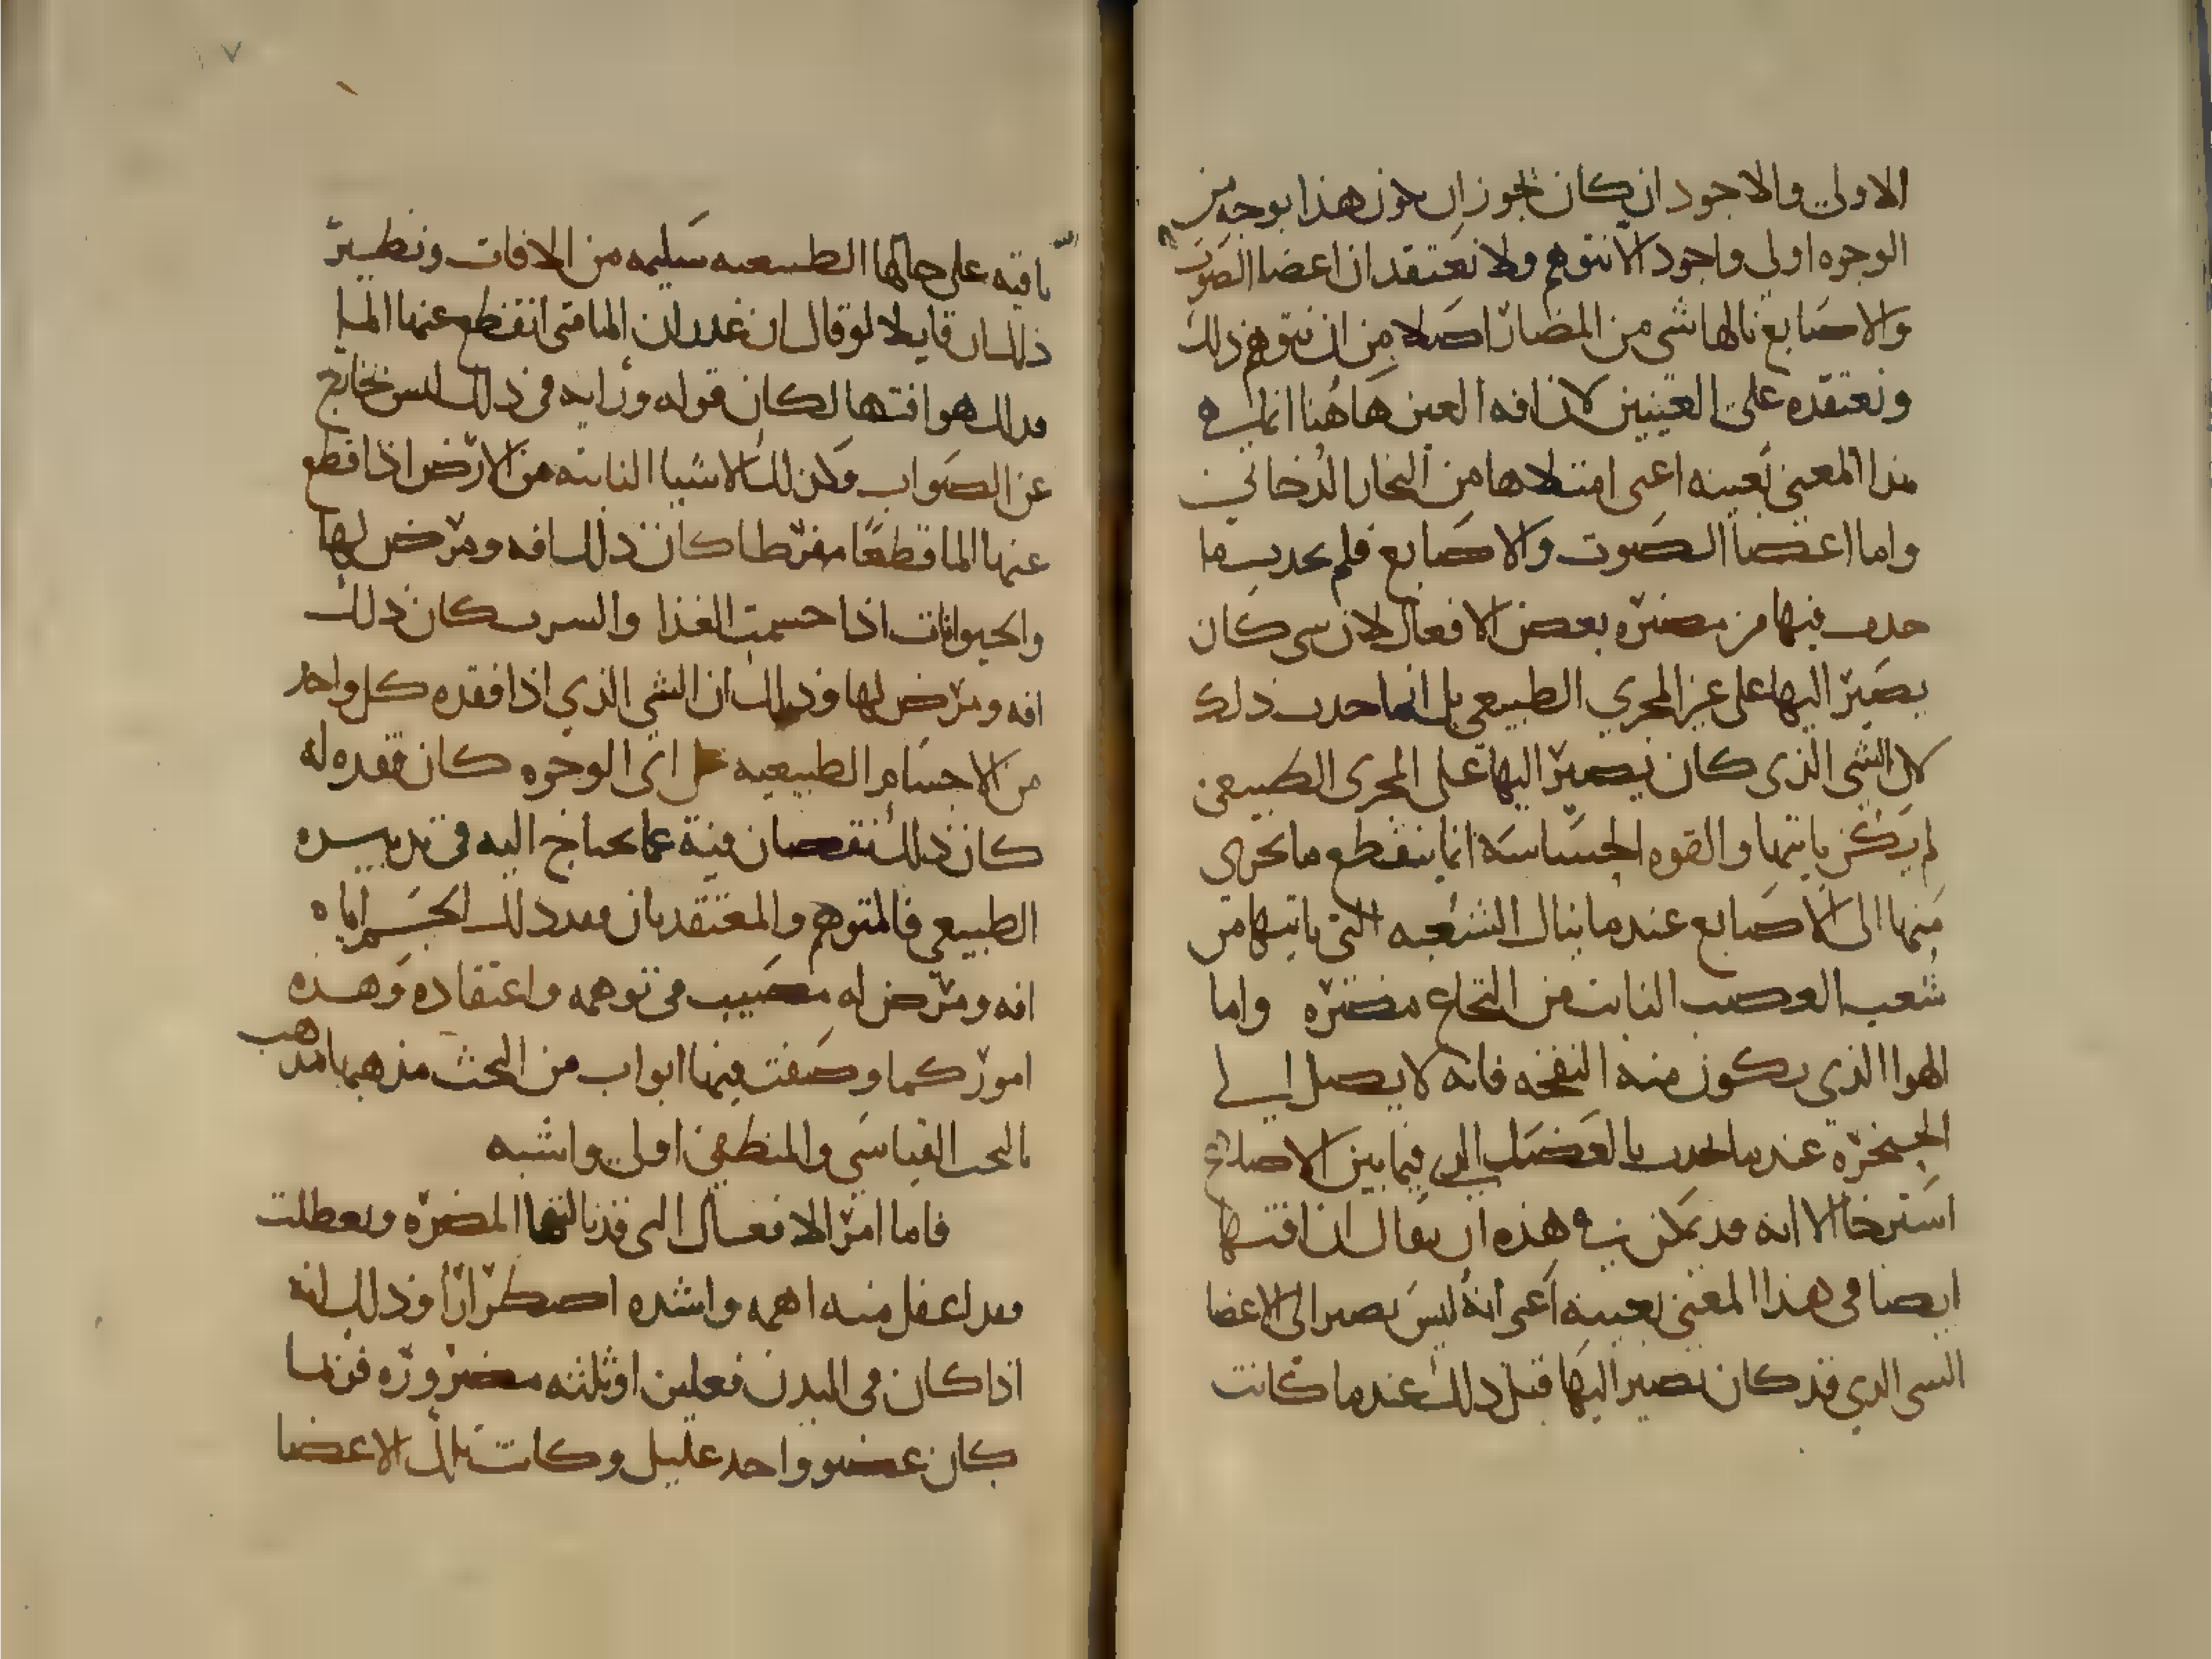 الاولى والاجود ان كان يجوز ان يكون هذا بوجه من
الوجوه اولى واجود الا نتوهم ولا نعتقد ان اعضا الصوت
والاصابع نالها شي من المضار اصلا من ان نتوهم ذلك
ونعتقده على العينين لان افه العين هاهنا انما هي
هذا المعنى بعينه اعنى امتلاها من البخار الدخاني
واما اعضا الصوت والاصابع فلم يحدث ما
حدث فيها من مضره بعض الافعال لان شى كان
يصير اليها على غير المجرى الطبيعي بل انما حدث ذلك
لان الشي الذى كان يصير اليها على المجرى الطبيعي
لم يكن ياتيها والقوه الحساسه انما ينقطع ما يجرى
منها الى الاصابع عندما ينال الشعبه التي ياتيها من
شعب العصب النابت من النخاع مضره واما
الهوا الذى يكون منه النفخه فانه لا يصل الى
الحنجره عندما يحدث بالعضل الذي فيما بين الاضلاع
استرخا الا انه قد يمكن في هذه ان يقال ان افتها
ايضا في هذا المعنى بعينه اعنى انه ليس يصير الى الاعضا
الشى الذي قد كان يصير اليها قبل ذلك عندما كانت
باقيه على حالها الطبيعيه سليمه من الافات ونظير
ذلك ان قايلا لو قال ان غدران الما متى انقطع عنها الما
فذلك هو افتها لكان قوله ورايه في ذلك ليس بخارج
عن الصواب وكذلك الاشيا النابته من الارض اذا قطع
عنها الما قطعا مفرطا كان ذلك افه ومرض لها
والحيوانات اذا حسمت الغذا والشرب كان ذلك
افه ومرض لها وذلك ان الشي الذي اذا فقده كل واحد
من الاجسام الطبيعيه على اى الوجوه كان فقده له
كان ذلك نقصان فيه عما يحتاج اليه في تدبيره
الطبيعي فالمتوهم والمعتقد بان فقد ذلك الجسم اياه
افه ومرض له مصيب في توهمه واعتقاده وهذه
امور كما وصفت فيها ابواب من البحث مذهبها مذهب
بالبحث القياسي والمنطقي اولى واشبه
فاما امر الافعال التى قد نالتها المضره وتعطلت
فقد اغفل منه اهمه واشده اضطرارا وذلك انه
اذا كان في البدن فعلين او ثلثه مضروره فربما
كان عضو واحد عليل وكانت تلك الاعضا